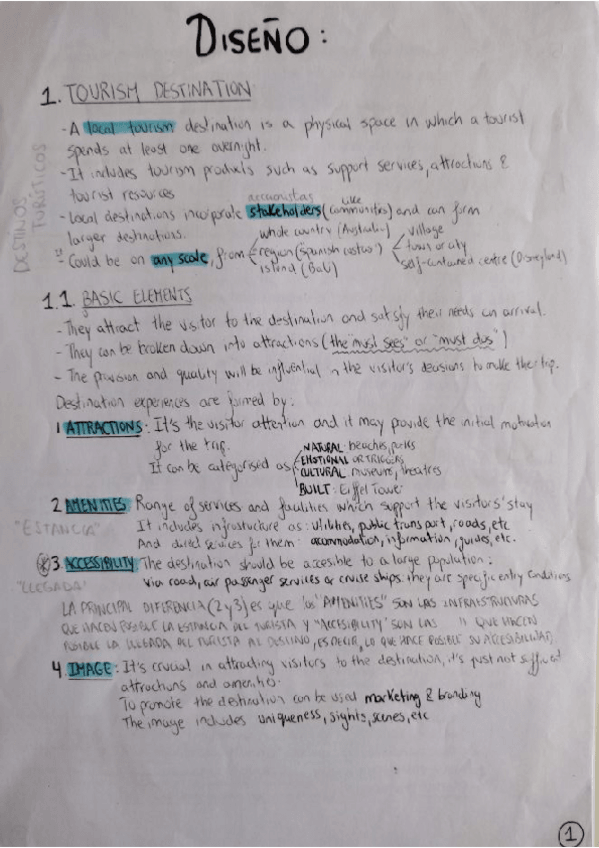 DISEÑO:
1. TOURISM DESTINATION
- A local tourism destination is a physical space in which a tourist
spends at least one overnight.
- It includes tourism products such as support services, attractions &
tourist resources
accionistas
like
- Local destinations incorporate stakeholders (communities) and can form
larger destinations.
- Could be on any scale, from
whole country (Australia)
region (Spanish costas)
island (Bali)
village
town or city
self-contained centre (Disneyland)
DESTINOS
TURÍSTICOS
1.1. BASIC ELEMENTS
- They attract the visitor to the destination and satisfy their needs on arrival.
- They can be broken down into attractions (the "must sees" or "must dos")
- The provision and quality will be influential in the visitor's decisions to make the trip.
Destination experiences are formed by:
1 ATTRACTIONS: It's the visitor attention and it may provide the initial motivation
for the trip.
It can be categorised as
NATURAL: beaches, parks
EMOTIONAL OR TRIGGERS
CULTURAL: museums, theatres
BUILT: Eiffel Tower
2 AMENITIES Range of services and facilities which support the visitors' stay
"ESTANCIA"
It includes infrastructure as: utilities, public transport, roads, etc
And direct services for them: accommodation, information, guides, etc.
3. ACCESSIBILITY: The destination should be accesible to a large population:
"LLEGADA"
via road, air passenger services or cruise ships: they are specific entry conditions
LA PRINCIPAL DIFERENCIA (2 y 3) es que los "AMENITIES" SON LAS INFRAESTRUCTURAS
QUE HACEN POSIBLE LA ESTANCIA DEL TURISTA Y "ACCESIBILITY" SON LAS " QUE HACEN
POSIBLE LA LLEGADA DEL TURISTA AL DESTINO, ES DECIR, LO QUE HACE POSIBLE SU ACCESIBILIDAD.
4. IMAGE: It's crucial in attracting visitors to the destination, it's just not sufficient
attractions and amenities.
To promote the destination can be used marketing & branding
The image includes uniqueness, sights, scenes, etc
1